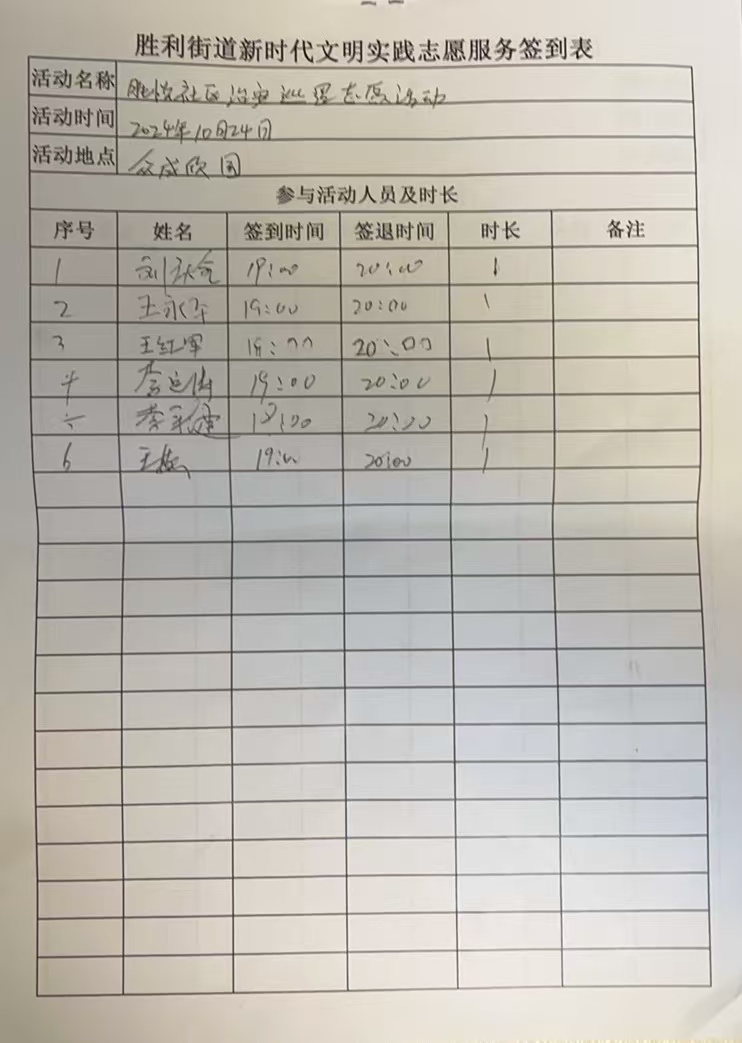 胜利街道新时代文明实践志愿服务签到表
活动名称 胜悦社区治安巡逻志愿活动
活动时间 2024年10月24日
活动地点 众成欣园
参与活动人员及时长
序号 姓名 签到时间 签退时间 时长 备注
1 19:00 20:00 1
2 王永军 19:00 20:00 1
3 王红军 19:00 20:00 1
4 19:00 20:00 1
5 20:00 1
6 19:00 20:00 1